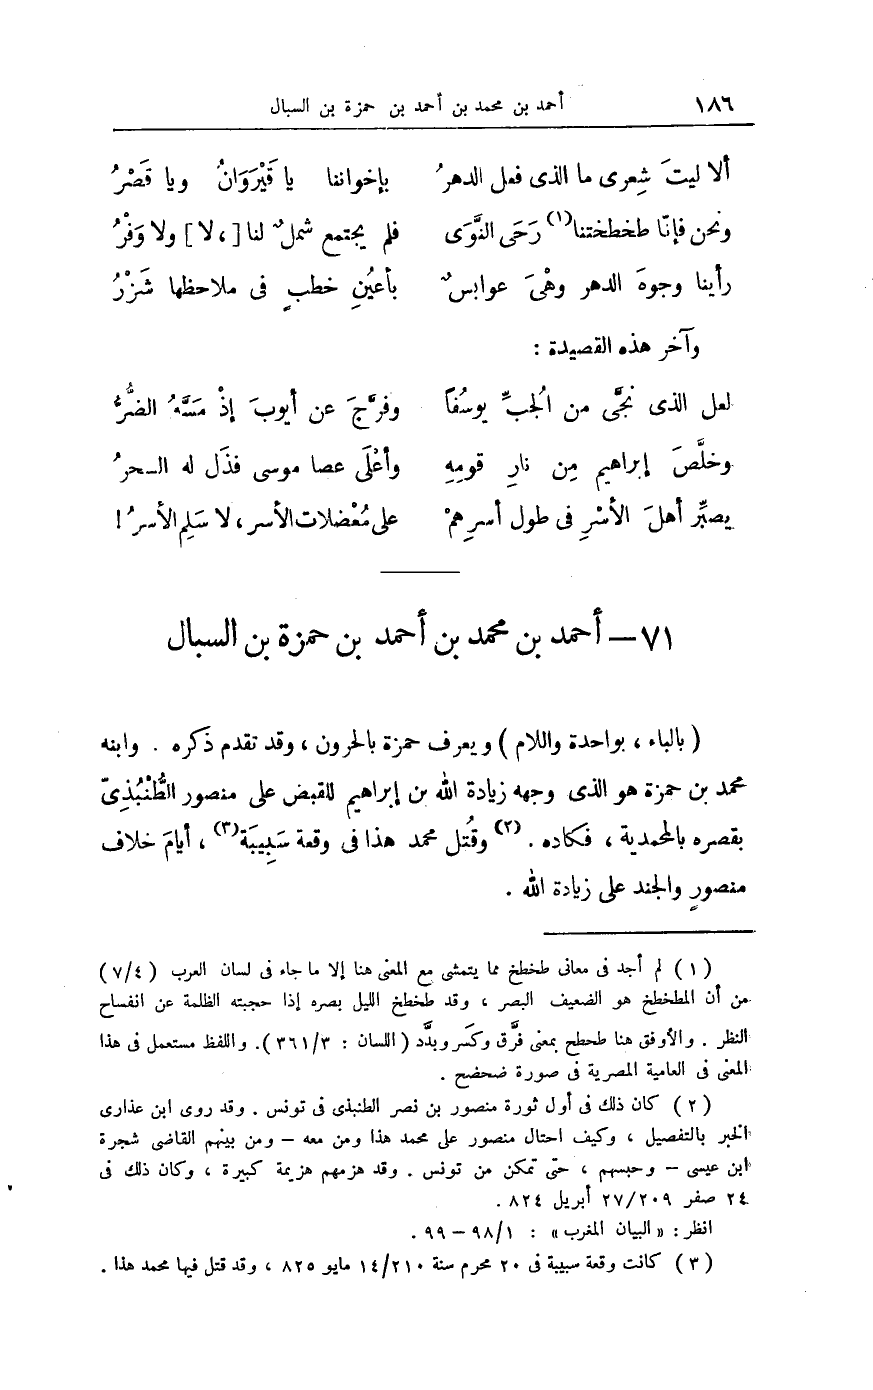 ١٨٦ أحمد بن محمد بن أحمد بن حمزة بن السبال
ألا ليتَ شِعرى ما الذى فعل الدهرُ بإخواننا يا قَيْرَوَانُ ويا قَصْرُ
ونحن فإنّا طخطختنا(١) رَحَى النَّوَى فلم يجتمع شملٌ لنا [، لا] ولا وَفْرُ
رأينا وجوهَ الدهر وهْىَ عوابسٌ بأعيُنِ خطبٍ فى ملاحظها شَزْرُ
وآخر هذه القصيدة :
لعل الذى نجَّى من الجبِّ يوسُفًا وفرَّجَ عن أيوبَ إذْ مَسَّهُ الضُّرُّ
وخلَّصَ إبراهيم مِن نارِ قومِهِ وأعْلَى عصا موسى فذَل له السحرُ
يصبِّر أهلَ الأسْرِ فى طول أسرِهمْ على مُعْضلات الأسر، لا سَلِم الأسرُ !
٧١ – أحمد بن محمد بن أحمد بن حمزة بن السبال
( بالباء ، بواحدة واللام ) ويعرف حمزة بالحرون ، وقد تقدم ذكره . وابنه
محمد بن حمزة هو الذى وجهه زيادة الله بن إبراهيم للقبض على منصور الطُّنْبُذِىّ
بقصره بالمحمدية ، فكاده . (٢) وقُتل محمد هذا فى وقعة سَبِيبَة(٣) ، أيامَ خلاف
منصورٍ والجند على زيادة الله .
( ١ ) لم أجد فى معانى طخطخ مما يتمشى مع المعنى هنا إلا ما جاء فى لسان العرب ( ٧/٤ )
من أن المطخطخ هو الضعيف البصر ، وقد طخطخ الليل بصره إذا حجبته الظلمة عن انفساح
النظر . والأوفق هنا طحطح بمعنى فرَّق وكسر وبدَّد ( اللسان : ٣٦١/٣ ). واللفظ مستعمل فى هذا
المعنى فى العامية المصرية فى صورة ضحضح .
( ٢ ) كان ذلك فى أول ثورة منصور بن نصر الطنبذى فى تونس . وقد روى ابن عذارى
الخبر بالتفصيل ، وكيف احتال منصور على محمد هذا ومن معه – ومن بينهم القاضى شجرة
ابن عيسى – وحبسهم ، حتى تمكن من تونس . وقد هزمهم هزيمة كبيرة ، وكان ذلك فى
٢٤ صفر ٢٧/٢٠٩ أبريل ٨٢٤ .
انظر : « البيان المغرب » : ٩٨/١ – ٩٩ .
( ٣ ) كانت وقعة سبيبة فى ٢٠ محرم سنة ١٤/٢١٠ مايو ٨٢٥ ، وقد قتل فيها محمد هذا .